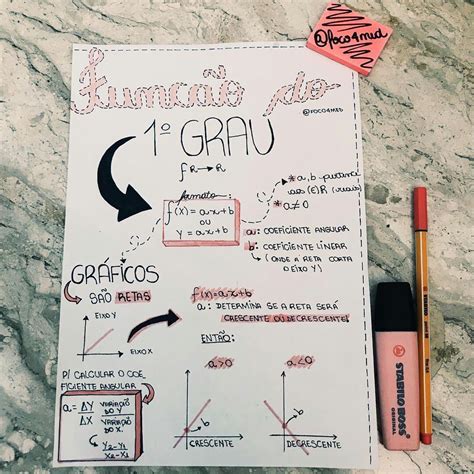 @foco4med
Função do
@FOCO4MED
1º GRAU
f R→R
formato:
f(x) = ax+b
ou
y = ax+b
* a, b pertence
aos (E) R (reais)
* a≠0
a: COEFICIENTE ANGULAR
b: COEFICIENTE LINEAR
(ONDE A RETA CORTA
O EIXO Y)
GRÁFICOS
SÃO RETAS
EIXO Y
EIXO X
f(x)=ax+b
a: DETERMINA SE A RETA SERÁ
CRESCENTE OU DECRESCENTE
ENTÃO:
a>0
b
CRESCENTE
a<0
b
DECRESCENTE
P/ CALCULAR O COE
FICIENTE ANGULAR
a = ΔY VARIAÇÃO DO Y
ΔX VARIAÇÃO DO X
Y2-Y1
X2-X1
STABILO BOSS
ORIGINAL